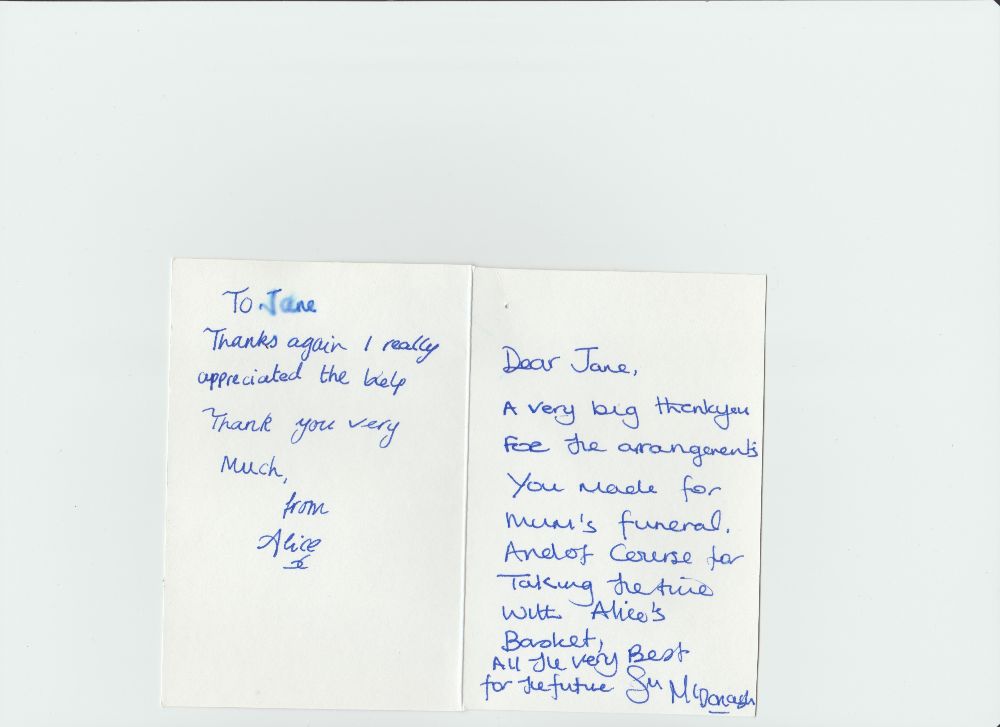 To Jane
Thanks again I really
appreciated the help
Thank you very
Much,
from
Alice
x
Dear Jane,
A very big thankyou
For the arrangements
You made for
Mum's funeral.
And of Course for
Taking the time
With Alice's
Basket,
All the very Best
for the future Su McDonagh